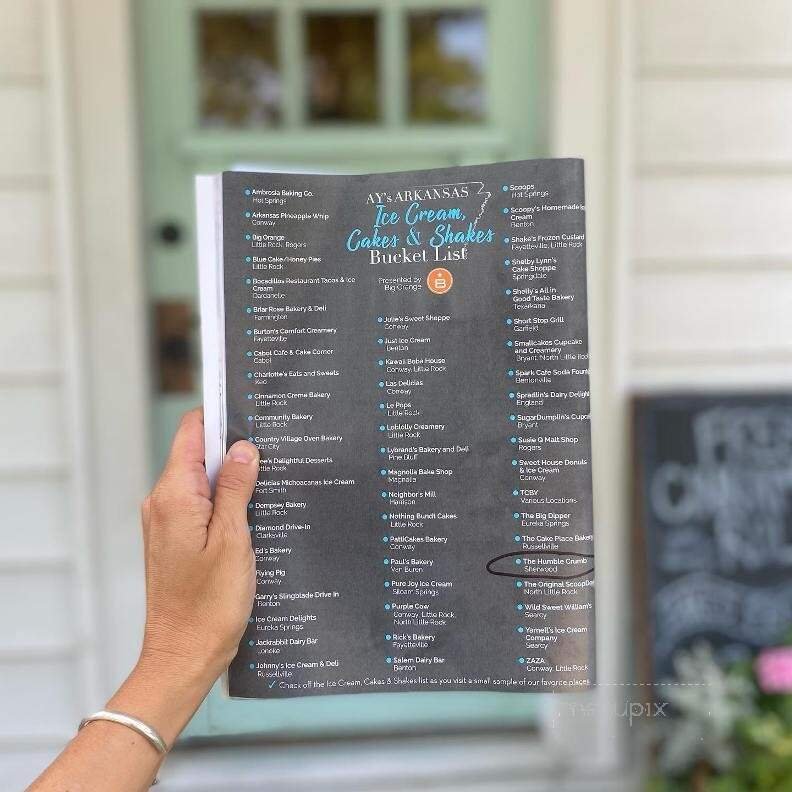 AY's ARKANSAS
Ice Cream,
Cakes & Shakes
Bucket List
Presented by
Big Orange
B
Ambrosia Baking Co.
Hot Springs
Arkansas Pineapple Whip
Conway
Big Orange
Little Rock, Rogers
Blue Cake/Honey Pies
Little Rock
Bocadillos Restaurant Tacos & Ice
Cream
Dardanelle
Briar Rose Bakery & Deli
Farmington
Burton's Comfort Creamery
Fayetteville
Cabot Cafe & Cake Corner
Cabot
Charlotte's Eats and Sweets
Keo
Cinnamon Creme Bakery
Little Rock
Community Bakery
Little Rock
Country Village Oven Bakery
Star City
Dee's Delightful Desserts
Little Rock
Delicias Michoacanas Ice Cream
Fort Smith
Dempsey Bakery
Little Rock
Diamond Drive-In
Clarksville
Ed's Bakery
Conway
Flying Pig
Conway
Garry's Slingblade Drive In
Benton
Ice Cream Delights
Eureka Springs
Jackrabbit Dairy Bar
Lonoke
Johnny's Ice Cream & Deli
Russellville
Julie's Sweet Shoppe
Conway
Just Ice Cream
Benton
Kawaii Boba House
Conway, Little Rock
Las Delicias
Conway
Le Pops
Little Rock
Loblolly Creamery
Little Rock
Lybrand's Bakery and Deli
Pine Bluff
Magnolia Bake Shop
Magnolia
Neighbor's Mill
Harrison
Nothing Bundt Cakes
Little Rock
PattiCakes Bakery
Conway
Paul's Bakery
Van Buren
Pure Joy Ice Cream
Siloam Springs
Purple Cow
Conway, Little Rock,
North Little Rock
Rick's Bakery
Fayetteville
Salem Dairy Bar
Benton
Scoops
Hot Springs
Scoopy's Homemade Ice
Cream
Benton
Shake's Frozen Custard
Fayetteville, Little Rock
Shelby Lynn's
Cake Shoppe
Springdale
Shelly's All in
Good Taste Bakery
Texarkana
Short Stop Grill
Garfield
Smallcakes Cupcake
and Creamery
Bryant, North Little Rod
Spark Cafe Soda Fount
Bentonville
Spradlin's Dairy Deligh
England
SugarDumplin's Cupca
Bryant
Susie Q Malt Shop
Rogers
Sweet House Donuts
& Ice Cream
Conway
TCBY
Various Locations
The Big Dipper
Eureka Springs
The Cake Place Bakery
Russellville
The Humble Crumb
Sherwood
The Original ScoopDo
North Little Rock
Wild Sweet William's
Searcy
Yarnell's Ice Cream
Company
Searcy
ZAZA
Conway, Little Rock
✓ Check off the Ice Cream, Cakes & Shakes list as you visit a small sample of our favorite places
menupix